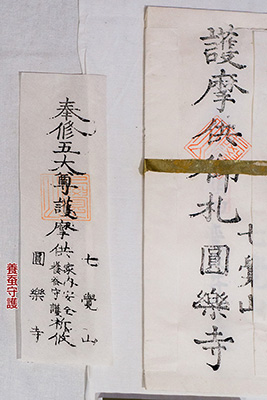 護摩供御札圓樂寺
七覺山
奉修五大尊護摩供
家内安全祈攸
養蚕守護
七覺山
圓樂寺
養蚕守護